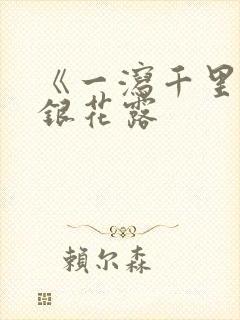 《一瀉千里
銀花露
賴尔森